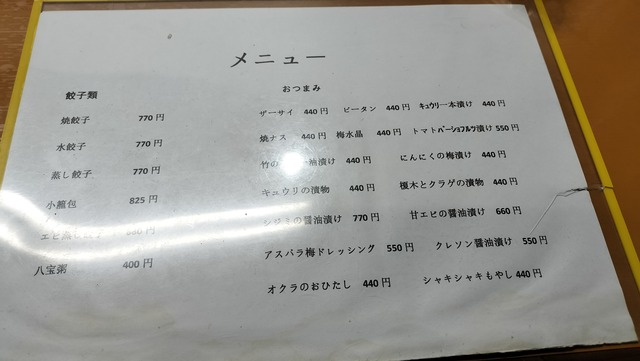 メニュー
餃子類
焼餃子 770円
水餃子 770円
蒸し餃子 770円
小籠包 825円
エビ蒸し餃子 円
八宝粥 400円
おつまみ
ザーサイ 440円 ピータン 440円 キュウリ一本漬け 440円
焼ナス 440円 梅水晶 440円 トマトパーショフルツ漬け 550円
竹の 油漬け 440円 にんにくの梅漬け 440円
キュウリの漬物 440円 榎木とクラゲの漬物 440円
シジミの醤油漬け 770円 甘エビの醤油漬け 660円
アスパラ梅ドレッシング 550円 クレソン醤油漬け 550円
オクラのおひたし 440円 シャキシャキもやし 440円